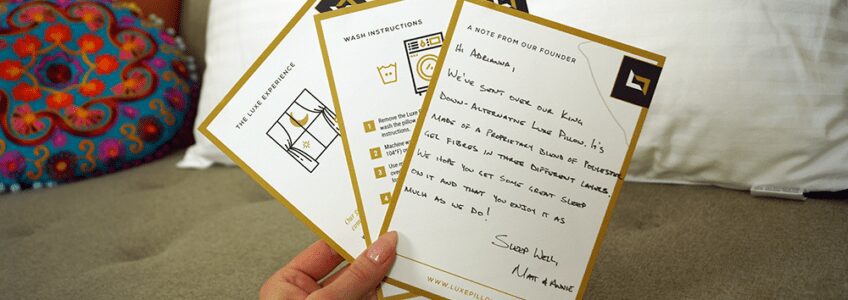 THE LUXE EXPERIENCE
WASH INSTRUCTIONS
1 Remove the Luxe
wash the pillow
instructions.
2 Machine w
104°F) or
3 Use
over
and
4
A NOTE FROM OUR FOUNDER
Hi Adrianna,
We've sent over our King
Down-Alternative Luxe Pillow. It's
made of a proprietary blend of polyester
gel fibres in three different layers.
We hope you get some great sleep
on it and that you enjoy it as
much as we do!
Sleep Well,
Matt & Annie
WWW.LUXEPILLO